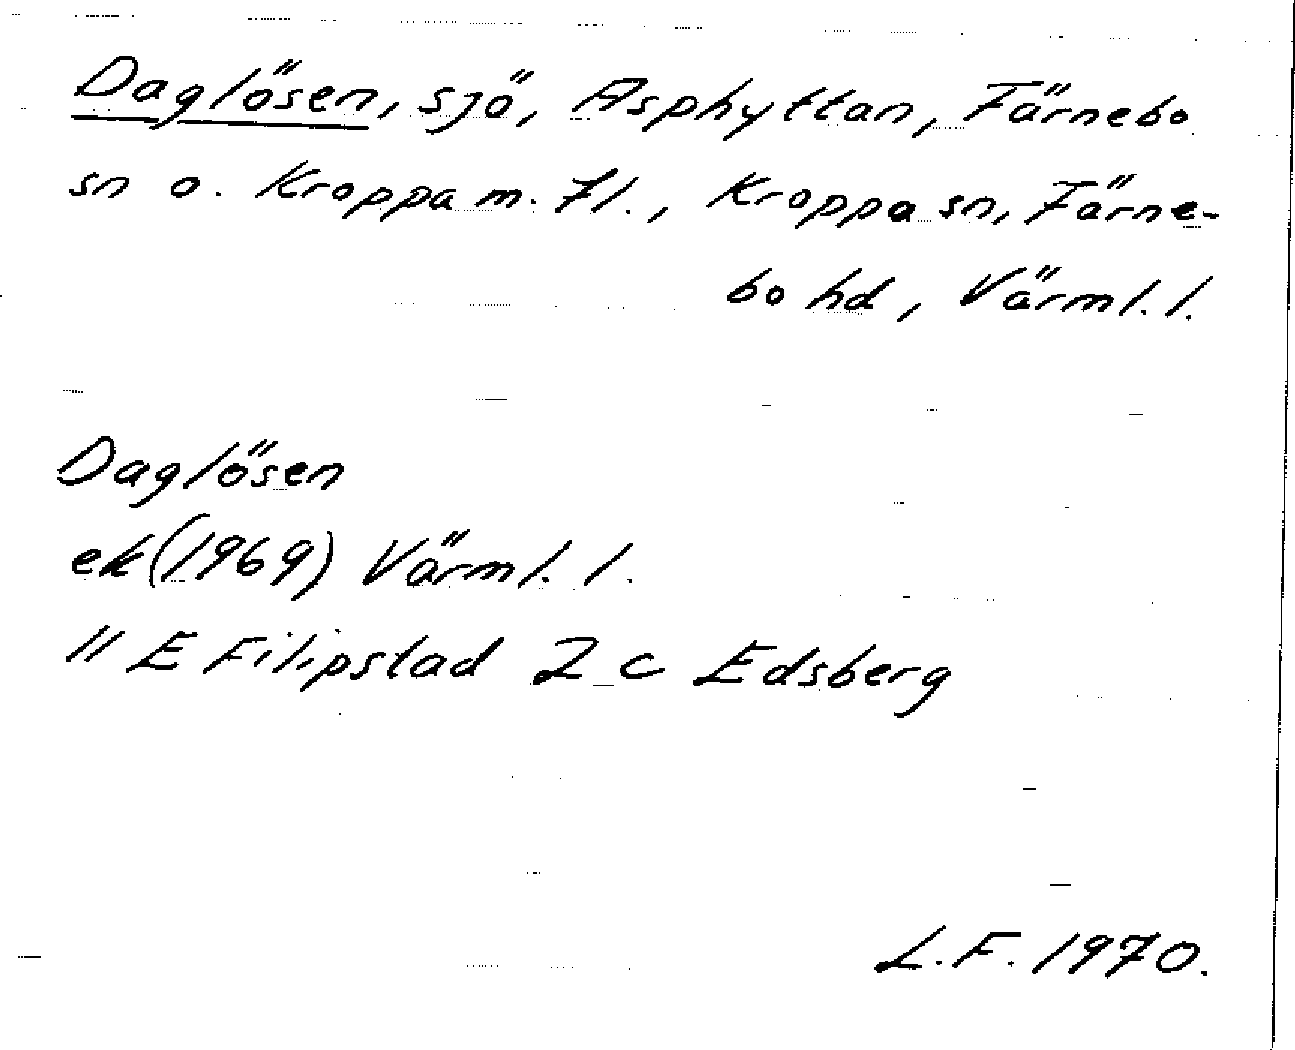 Daglösen, sjö, Asphyttan, Färnebo
sn o. Kroppa m. fl., Kroppa sn, Färne-
bo hd, Värml. l.
Daglösen
ek (1969) Värml. l.
" E Filipstad 2 c Edsberg
L.F. 1970.